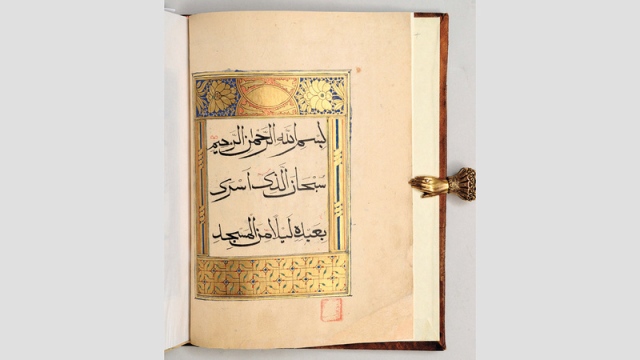 بسم الله الرحمن الرحيم
سبحان الذي اسرى
بعبده ليلا من المسجد